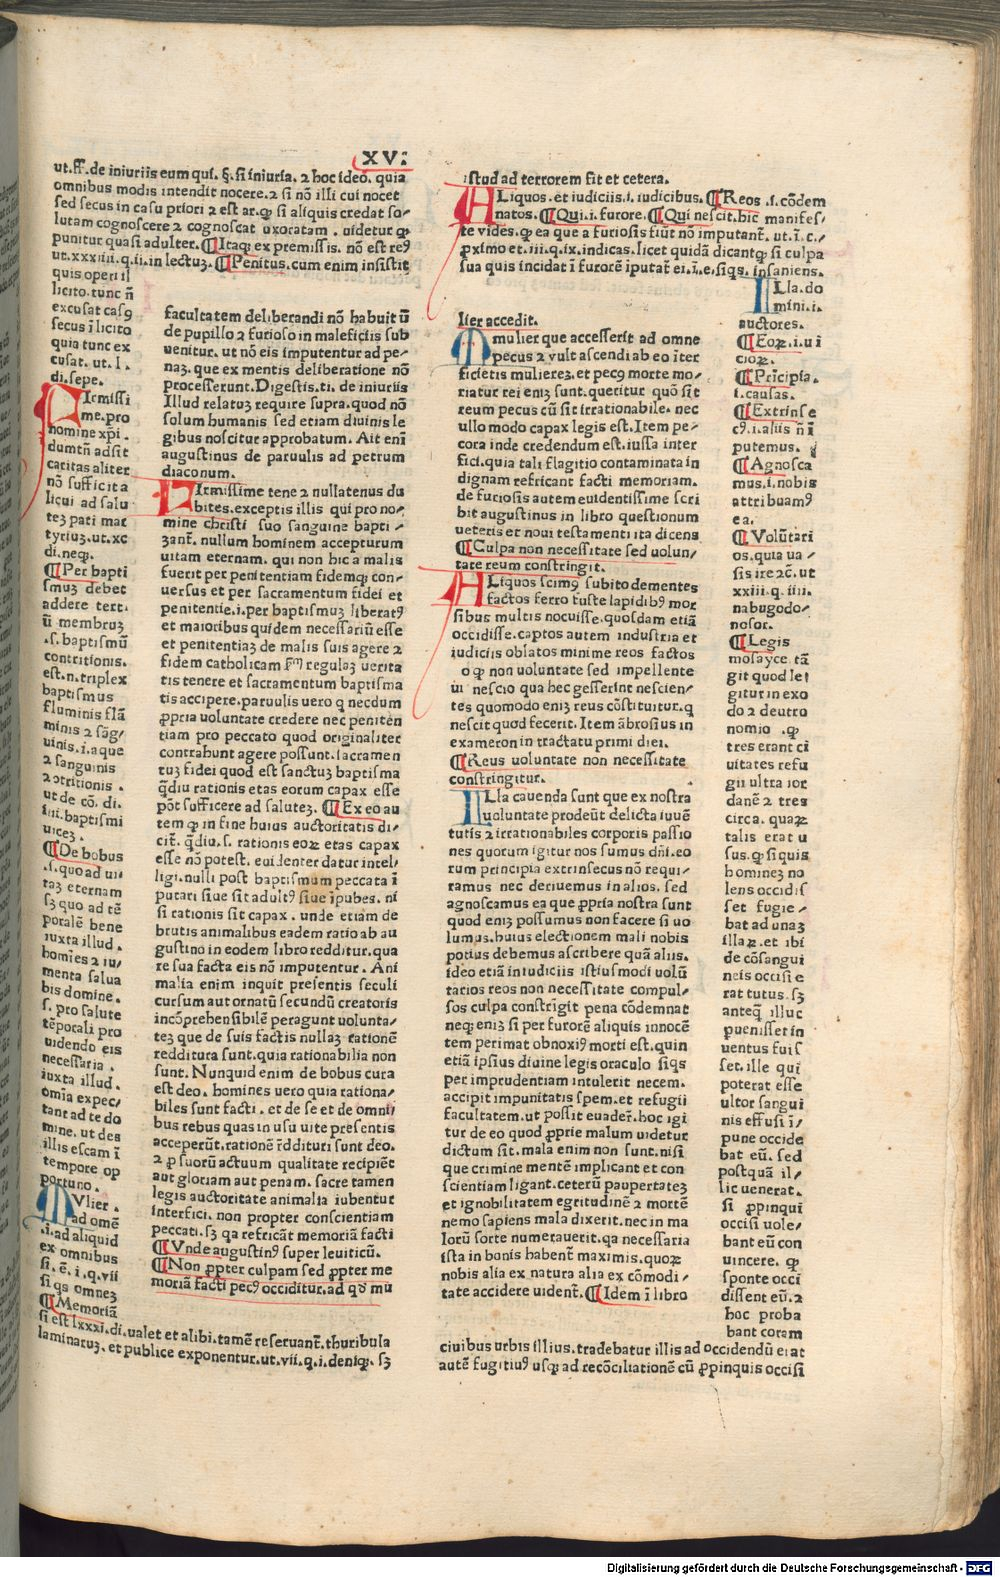 XV.
ut.ff.de iniuriis eum qui. §. si iniuria. ⁊ hoc ideo. quia
omnibus modis intendit nocere.⁊ si nõ illi cui nocet
sed secus in casu priori ⁊ est ar.ꝙ si aliquis credat so⸗
lutam cognoscere ⁊ cognoscat uxoratam . uidetur ꝙ
punitur quasi adulter. ¶ Itaqꝫ ex premissis. nõ est reꝰ
ut.xxxiiii.q.ii.in lectuꝫ. ¶ Penitus.cum enim insistit
quis operi il
licito.tunc ñ
excusat casꝰ
secus ĩ licito
quia tunc ex
cusat. ut. l.
di.sepe.
FIrmissi
me.pro
nomine xp̃i.
dumtñ adsit
caritas aliter
nõ sufficit a
licui ad salu
teꝫ pati mar
tyriuꝫ.ut.xc
di.neqꝫ.
¶ Per bapti
smuꝫ debet
addere terti
ũ membruꝫ
.s. baptismũ
contritionis.
est.n.triplex
baptismus
fluminis flã
minis ⁊ sãg⸗
uinis.i.aque
⁊ sanguinis
⁊ ɔtritionis .
ut de cõ. di.
iiii.baptismi
uiceꝫ.
¶ De bobus
.s.quo ad ui⸗
taꝫ eternam
sꝫ quo ad tẽ
poralẽ bene
iuxta illud .
homĩes ⁊ iu⸗
menta salua
bis domine.
s. pro salute
tẽporali pro
uidendo eis
necessaria .
iuxta illud .
omia expec⸗
tant ad te do
mine. ut des
illis escam ĩ
tempore op
portuno.
MVlier .
ad omẽ
.i.ad aliquid
ex omnibus
si. ẽ. i .q.vii
si qs omneꝫ
¶ Memoriã
si est lxxxi.di.ualet et alibi.tamẽ reseruant̃. thuribula
laminaruꝫ. et publice exponentur.ut.vii.q.i.deniqꝫ. sꝫ
facultatem deliberandi nõ habuit ũ
de pupillo ⁊ furioso in maleficiis sub
uenitur. ut nõ eis imputentur ad pe⸗
naꝫ. que ex mentis deliberatione nõ
processerunt.Digestis.ti. de iniuriis
Illud relatuꝫ require supra.quod nõ
solum humanis sed etiam diuinis le
gibus noscitur approbatum. Ait enĩ
augustinus de paruulis ad petrum
diaconum.
FIrmissime tene ⁊ nullatenus du
bites.exceptis illis qui pro no⸗
mine christi suo sanguine bapti⸗
ꝫant̃. nullum hominem accepturum
uitam eternam. qui non hic a malis
fuerit per penitentiam fidemqꝫ con⸗
uersus et per sacramentum fidei et
penitentie.i.per baptismuꝫ liberatꝰ
et maioribus quidem necessariũ esse
et penitentiaꝫ de malis suis agere ⁊
fidem catholicam fm̃ regulaꝫ uerita
tis tenere et sacramentum baptisma
tis accipere.paruulis uero q necdum
ꝓpria uoluntate credere nec peniten
tiam pro peccato quod originaliter
contrahunt agere possunt.sacramen
tuꝫ fidei quod est sanctuꝫ baptisma
q̃diu rationis etas eorum capax esse
põt sufficere ad saluteꝫ. ¶ Ex eo au
tem ꝙ in fine huius auctoritatis di⸗
cit̃. q̃diu.s. rationis eoꝝ etas capax
esse nõ potest. euidenter datur intel⸗
ligi.nulli post baptismum peccata ĩ
putari siue sit adultꝰ siue ĩpubes. ni
si rationis sit capax . unde etiam de
brutis animalibus eadem ratio ab au
gustino in eodem libro redditur.qua
re sua facta eis nõ imputentur. Ani
malia enim inquit presentis seculi
cursum aut ornatũ secundũ creatoris
incõprehensibilẽ peragunt uolunta⸗
teꝫ que de suis factis nullaꝫ rationẽ
redditura sunt.quia rationabilia non
sunt. Nunquid enim de bobus cura
est deo. homines uero quia rationa⸗
biles sunt facti . et de se et de omni⸗
bus rebus quas in usu uite presentis
acceperũt.rationẽ rẽddituri sunt deo.
⁊ ꝓ suorũ actuum qualitate recipiẽt
aut gloriam aut penam. sacre tamen
legis auctoritate animalia iubentur
interfici. non propter conscientiam
peccati. sꝫ qa refricãt memoriã facti
¶ Vnde augustinꝰ super leuiticũ.
¶ Non ꝓpter culpam sed ꝓpter me
moriã facti pecꝰ occiditur.ad qd̃ mu
istud ad terrorem fit et cetera.
ALiquos.et iudiciis.i.iudicibus. ¶ Reos .i.cõdem
natos. ¶ Qui.i.furore. ¶ Qui nescit.hic manifes⸗
te uides.ꝙ ea que a furiosis fiũt nõ imputant̃. ut.ĩ.c.
ꝓximo et.iii.q.ix.indicas.licet quidã dicantꝙ si culpa
sua quis incidat ĩ furorẽ iputat̃ ei.ĩ.e.siqs. insaniens.
lier accedit.
Mmulier que accesserit ad omne
pecus ⁊ vult ascendi ab eo iter
ficietis muliereꝫ.et pecꝰ morte mo⸗
riatur rei eniꝫ sunt.queritur quõ sit
reum pecus cũ sit irrationabile. nec
ullo modo capax legis est.Item pe⸗
cora inde credendum est.iussa inter
fici.quia tali flagitio contaminata in
dignam refricant facti memoriam.
de furiosis autem euidentissime scri
bit augustinus in libro questionum
ueteris et noui testamenti ita dicens
¶ Culpa non necessitate sed uolun⸗
tate reum constringit.
ALiquos scimꝰ subito dementes
factos ferro fuste lapidibꝰ mor
sibus multis nocuisse.quosdam etiã
occidisse.captos autem industria et
iudiciis oblatos minime reos factos
o ꝙ non uoluntate sed impellente
ui nescio qua hec gesserint nescien⸗
tes quomodo eniꝫ reus cõstituitur.q
nescit quod fecerit.Item ãbrosius in
exameron in tractatu primi diei.
¶ Reus uoluntate non necessitate
constringitur.
ILla cauenda sunt que ex nostra
uoluntate prodeũt delicta iuuẽ
tutis ⁊ irrationabiles corporis passio
nes quorum igitur nos sumus dñi.eo
rum principia extrinsecus nõ requi⸗
ramus nec deriuemus in alios. sed
agnoscamus ea que ꝓpria nostra sunt
quod eniꝫ possumus non facere si uo
lumꝰ.huius electionem mali nobis
potius debemus ascribere quã aliis.
ideo etiã in iudiciis istiusmodi uolũ
tarios reos non necessitate compul⸗
sos culpa constrĩgit pena cõdemnat
neqꝫ eniꝫ si per furorẽ aliquis innocẽ
tem perimat obnoxiꝰ morti est.quin
etiã ipsius diuine legis oraculo siqs
per imprudentiam intulerit necem.
accipit impunitatis spem.et refugii
facultatem.ut possit euader̃.hoc igi
tur de eo quod ꝓprie malum uidetur
dictum sit.mala enim non sunt.nisi
que crimine mentẽ implicant et con
scientiam ligant.ceterũ paupertateꝫ
et ignobilitatem egritudinẽ ⁊ mortẽ
nemo sapiens mala dixerit.nec in ma
lorũ sorte numerauerit.qa necessaria
ista in bonis habent̃ maximis.quoꝝ
nobis alia ex natura alia ex cõmodi⸗
tate accidere uident̃. ¶ Idem ĩ libro
ILla.do
mini.i.
auctores.
¶ Eoꝝ.i.ui
cioꝝ.
¶ Prĩcipia.
i.causas.
¶ Extrinse
cꝰ.i.aliis ñ ĩ
putemus.
¶ Agnosca
mus.i.nobis
attribuamꝰ
ea.
¶ Volũtari
os.quia ua⸗
sis ire ⁊c̃. ut
xxiii.q.iiii.
nabugodo⸗
nosor.
¶ Legis
mosayce tã
git quod le
gitur in exo
do ⁊ deutro
nomio .ꝙ
tres erant ci
uitates refu
gii ultra ior
danẽ ⁊ tres
circa. quaꝝ
talis erat u
sus.ꝙ si quis
homineꝫ no
lens occidis
set fugie⸗
bat ad unaꝫ
illaꝝ.et ibi
de cõsangui
neis occisi e
rat tutus. sꝫ
anteq̃ illuc
puenisset in
uentus fuis
set. ille qui
poterat esse
ultor sangui
nis effusi ĩ⸗
pune occide
bat eũ. sed
postquã il⸗
lic uenerat.
si ꝓpinqui
occisi uole⸗
bant eũ con
uincere. ꝙ
sponte occi
dissent eũ. ⁊
hoc proba
bant coram
ciuibus urbis illius.tradebatur illis ad occidendũ erat
autẽ fugitiuꝰ usqꝫ ad recõciliationẽ cũ ꝓpinquis occisi
Digitalisierung gefördert durch die Deutsche Forschungsgemeinschaft - DFG